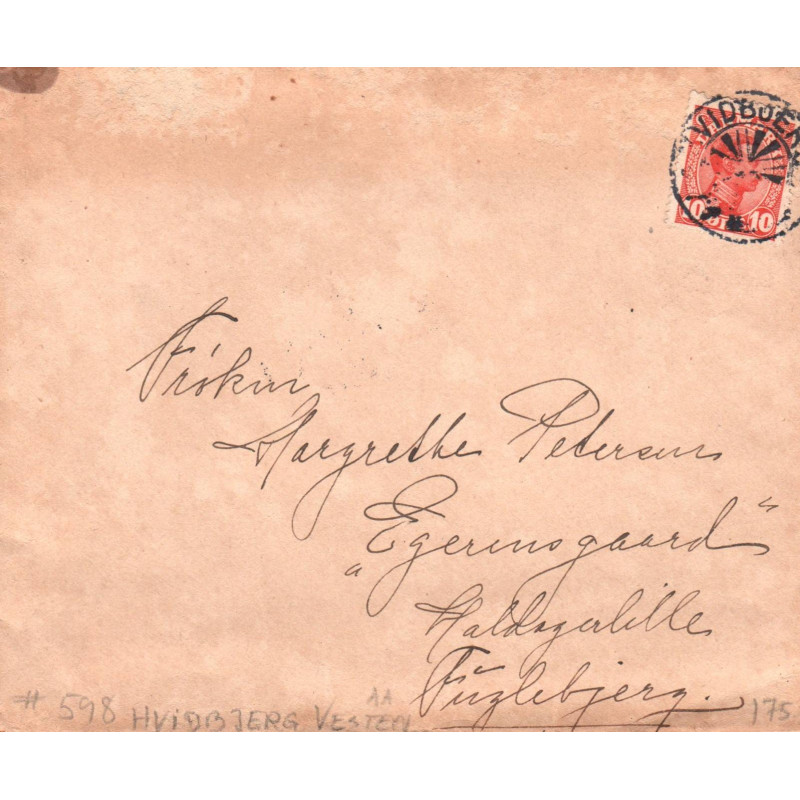 VIDBJER
10 10
Frøken
Margrethe Petersen
"Egerupsgaard"
Haldagerlille
Fuglebjerg.
# 598 HVIDBJERG VESTEN AA
175